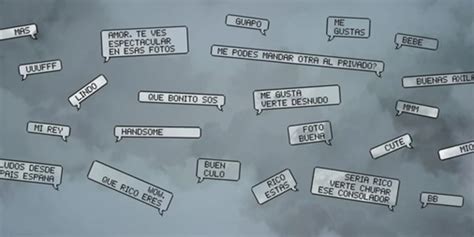 MAS
AMOR. TE VES
ESPECTACULAR
EN ESAS FOTOS
GUAPO
ME
GUSTAS
BEBE
UUUFFF
ME PODES MANDAR OTRA AL PRIVADO?
LINDO
QUE BONITO SOS
ME GUSTA
VERTE DESNUDO
BUENAS AXILA
MMM
MI REY
HANDSOME
FOTO
BUENA
CUTE
MIO
LUDOS DESDE
PAIS ESPANA
WOW,
QUE RICO ERES
BUEN
CULO
RICO
ESTAS
SERIA RICO
VERTE CHUPAR
ESE CONSOLADOR
BB